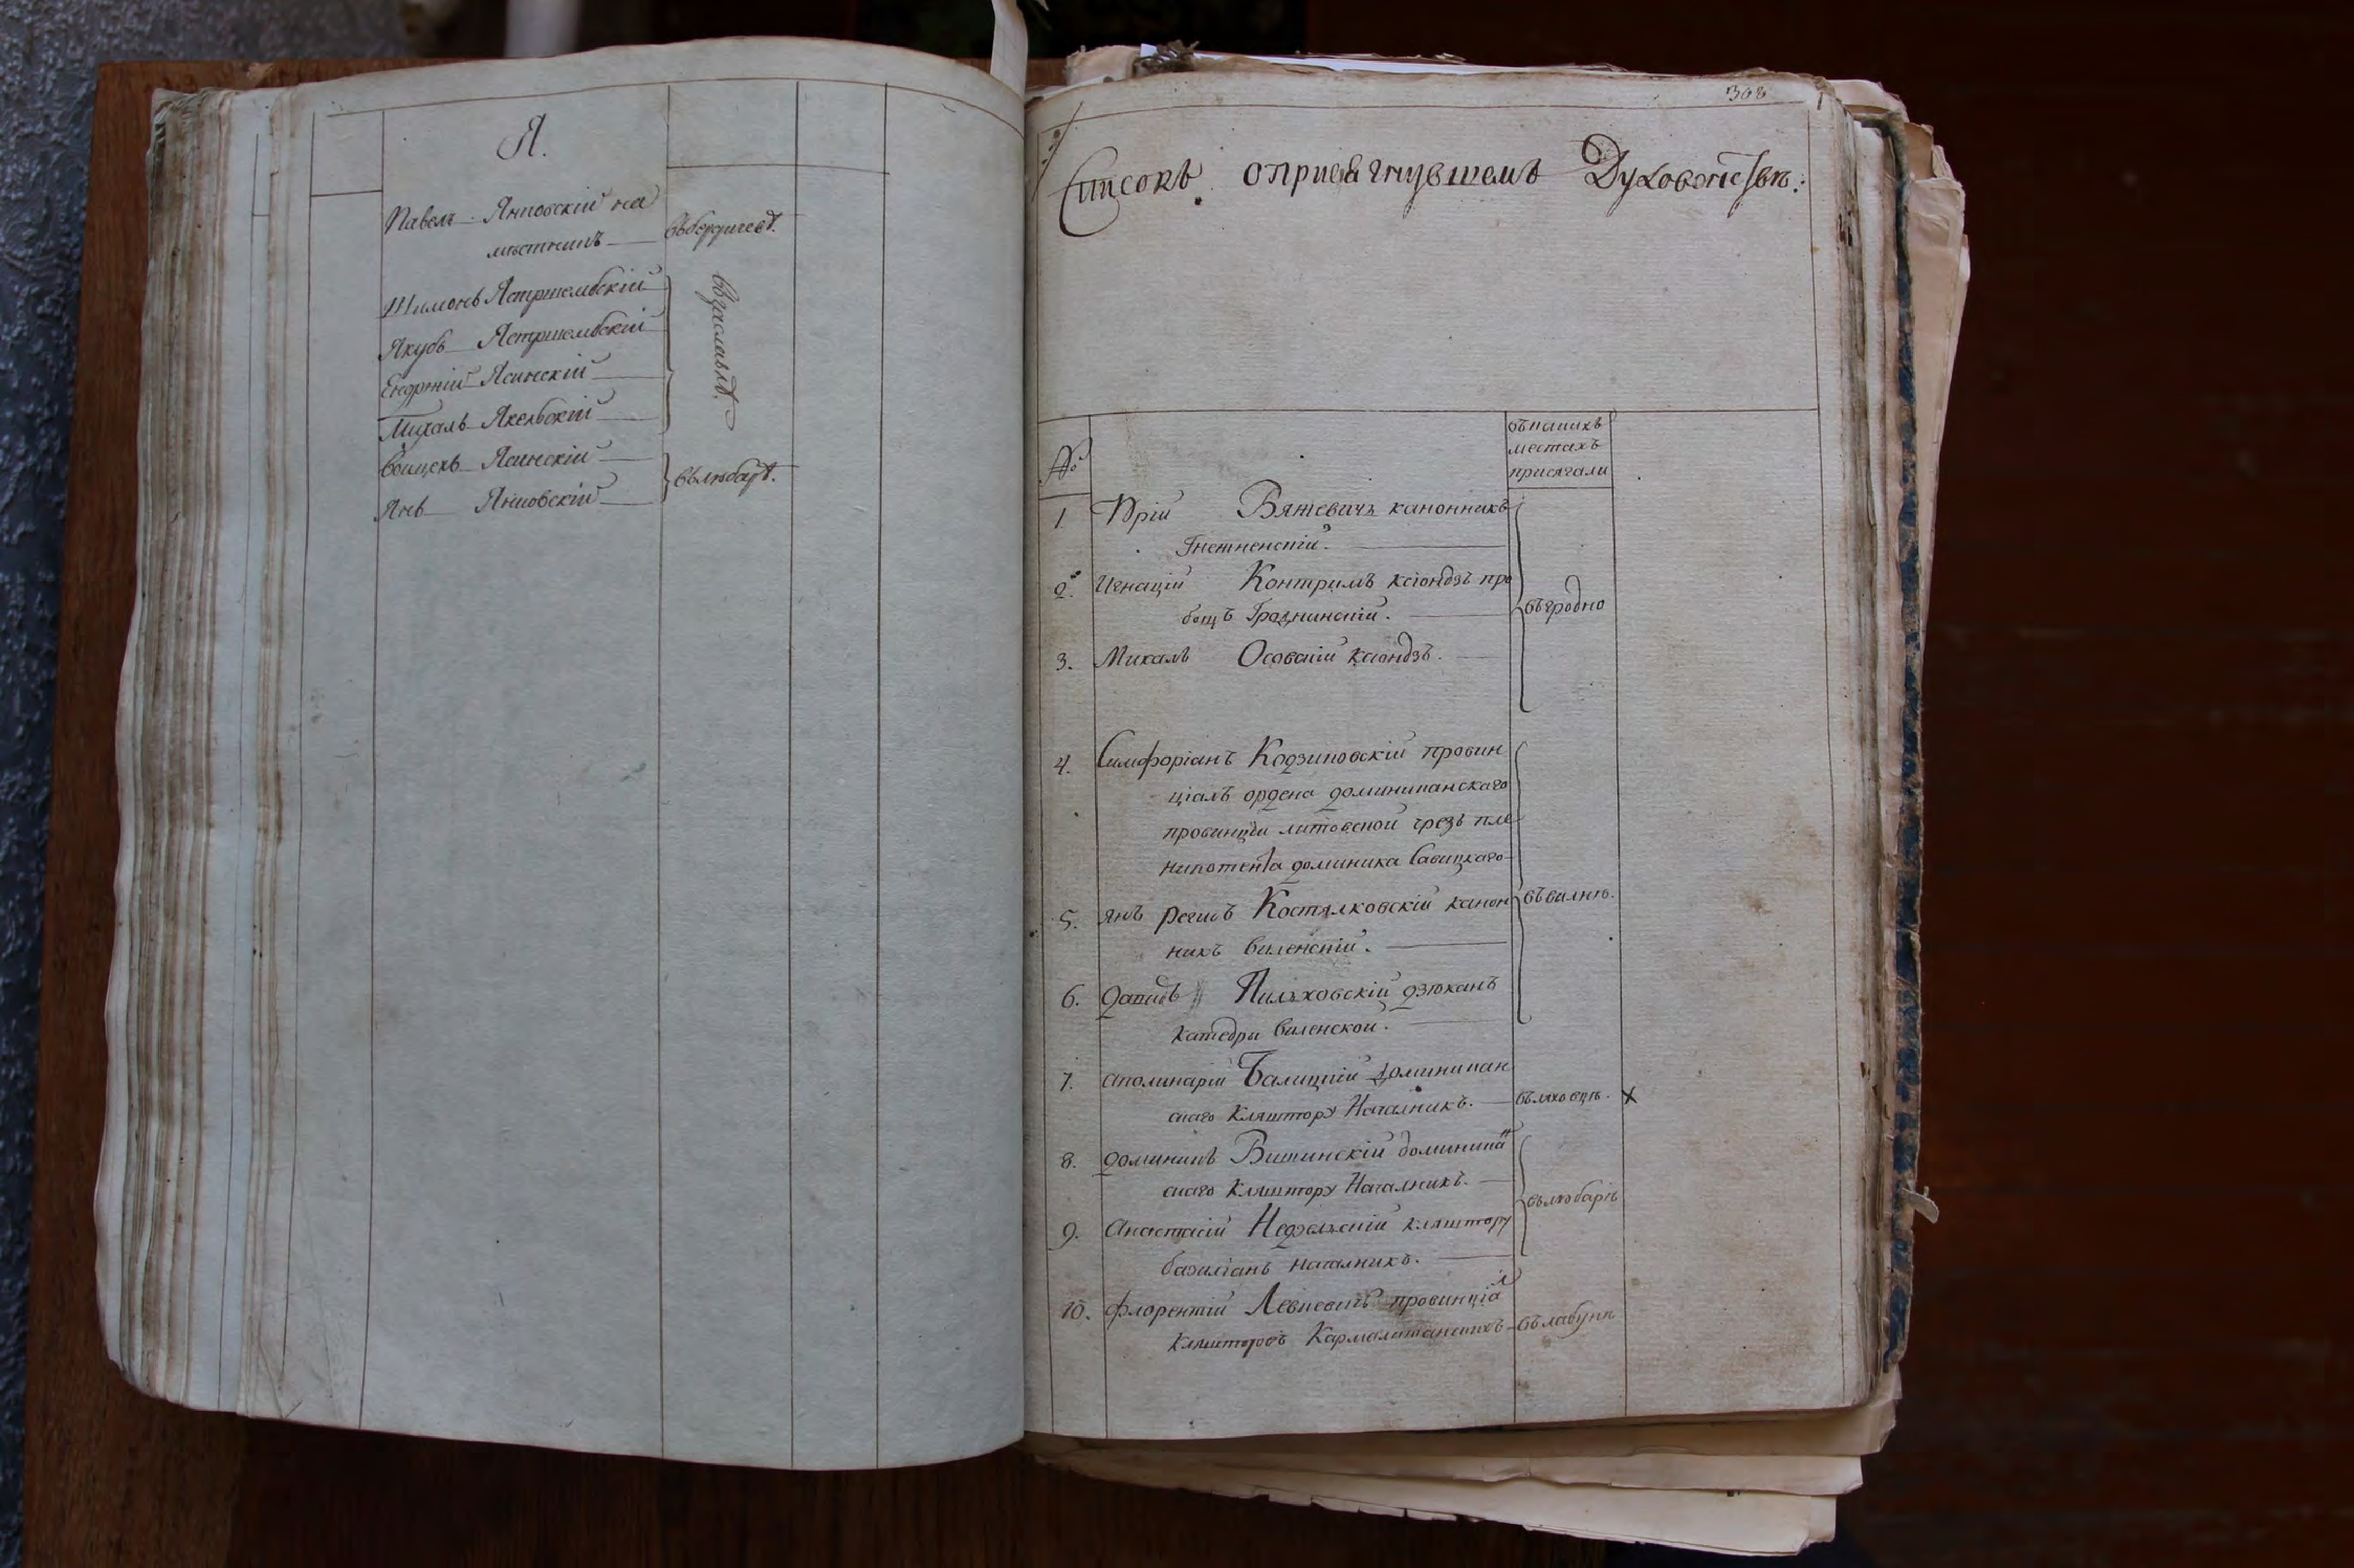 Я.
Павелъ Янковскій на
мѣстникъ въ бердичевѣ.
Шимонъ Ястршембскій
Якубъ Ястршембскій
Ендржій Ясинскій
Михалъ Якельскій
въ заславлѣ.
Войцехъ Ясинскій
въ любарѣ.
Янъ Яновскій
308
Списокъ о присягнувшемъ Духовенствѣ:
№
въ какихъ
местахъ
присягали
1. Юрій Вяжевичъ канонникъ
Гнезненскій.
2. Игнацій Контримъ ксіондзъ про
бощъ Гродзинскій.
въ гродно
3. Михалъ Осовскій ксіондзъ.
4. Симфоріанъ Кодзиновскій провин
ціалъ ордена доминиканскаго
провинціи литовской чрезъ пле
нипотента доминика Савицкаго
5. Янъ регисъ Костялковскій канон
никъ виленскій.
въ вилнѣ.
6. Давидъ Пильховскій дзюканъ
катедры виленской.
7. Аполинарій Балицкій доминикан
скаго кляштору Началникъ. въ ляховцѣ. x
8. доминикъ Вишинскій доминика
н
скаго кляштору Началникъ.
въ любарѣ
9. Анастасій Недзельскій кляштору
базиліанъ началникъ.
10. Флорентій Левкевичъ провинціа
л
кляшторовъ Кармалитанскихъ въ лабунѣ